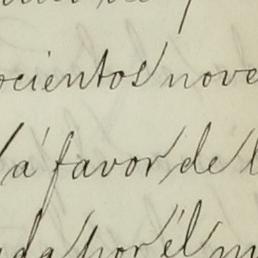 ocientos nove
á favor de l
da por él m